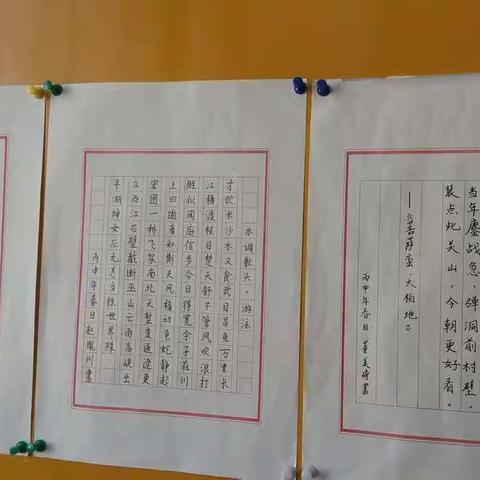 当年鏖战急，弹洞前村壁。
装点此关山，今朝更好看。
——《菩萨蛮·大柏地》
丙申年春日 董美琦書
水调歌头·游泳
才饮长沙水又食武昌鱼万里长
江横渡极目楚天舒不管风吹浪打
胜似闲庭信步今日得宽余子在川
上曰逝者如斯夫风樯动龟蛇静起
宏图一桥飞架南北天堑变通途更
立西江石壁截断巫山云雨高峡出
平湖神女应无恙当惊世界殊
丙申年春日赵胤州書